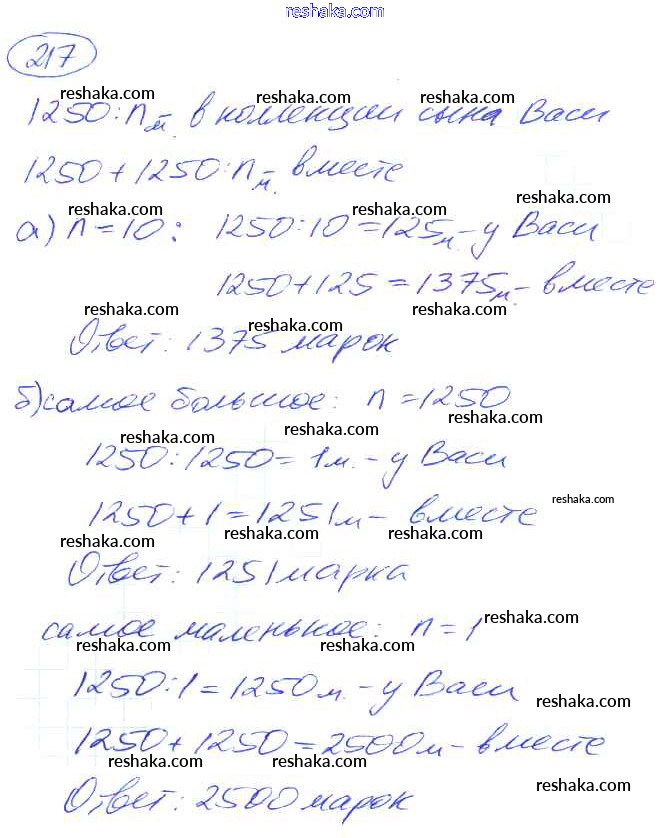 reshaka.com
217
reshaka.com reshaka.com reshaka.com
1250:n м. в коллекции сына Васи
1250+1250:n м. вместе
reshaka.com reshaka.com reshaka.com
а) n=10: 1250:10=125м.-у Васи
1250+125=1375м.-вместе
reshaka.com reshaka.com reshaka.com
Ответ: 1375 марок
б) самое большое: n=1250
reshaka.com reshaka.com reshaka.com
1250:1250=1м.-у Васи
reshaka.com
1250+1=1251м-вместе
reshaka.com reshaka.com reshaka.com
Ответ: 1251 марка
reshaka.com
самое маленькое: n=1
reshaka.com reshaka.com
1250:1=1250м.-у Васи
reshaka.com
1250+1250=2500м-вместе
reshaka.com reshaka.com reshaka.com
Ответ: 2500 марок